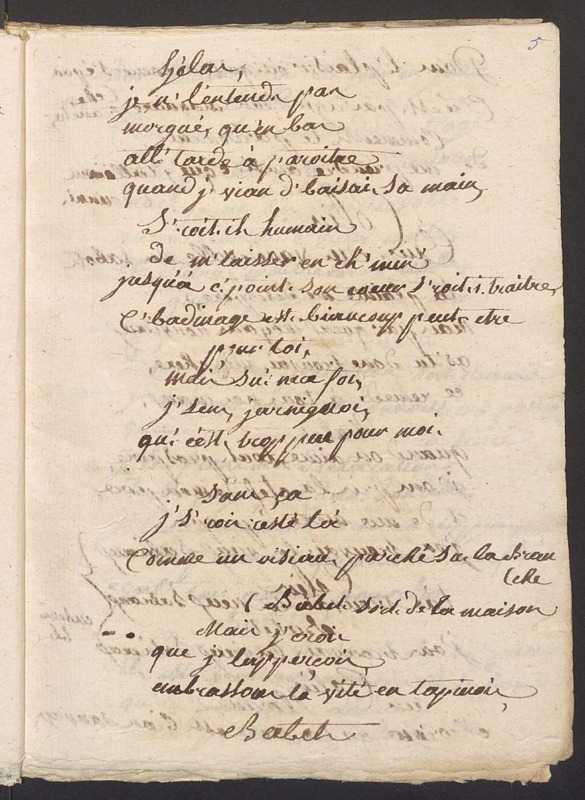 5
hélas,
je n' l'entends pas
morgué, qu'en bas
all' tarde à paroitre
quand j' vian d' baisai sa main,
S'roit-ch' humain
de m' laisser en ch'min
jusqu'à c' point. son coeur s'roit-i. traitre,
C' badinage est biaucoup peut-etre
pour toi,
mais su' ma foi,
j' sens, jarniguoi,
qu' c'est trop peu pour moi.
sans ça
j' s'rois resté là
Comme un oisiau, parché sur la bran
(che
( Babet sort de la maison
Mais j' crois
que j' l'apperçois,
embrassons la vite en tapinois,
Babet